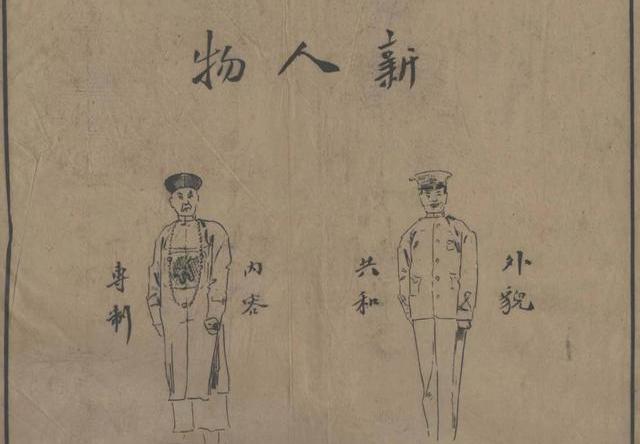 新人物
外貌
共和
内容
專制